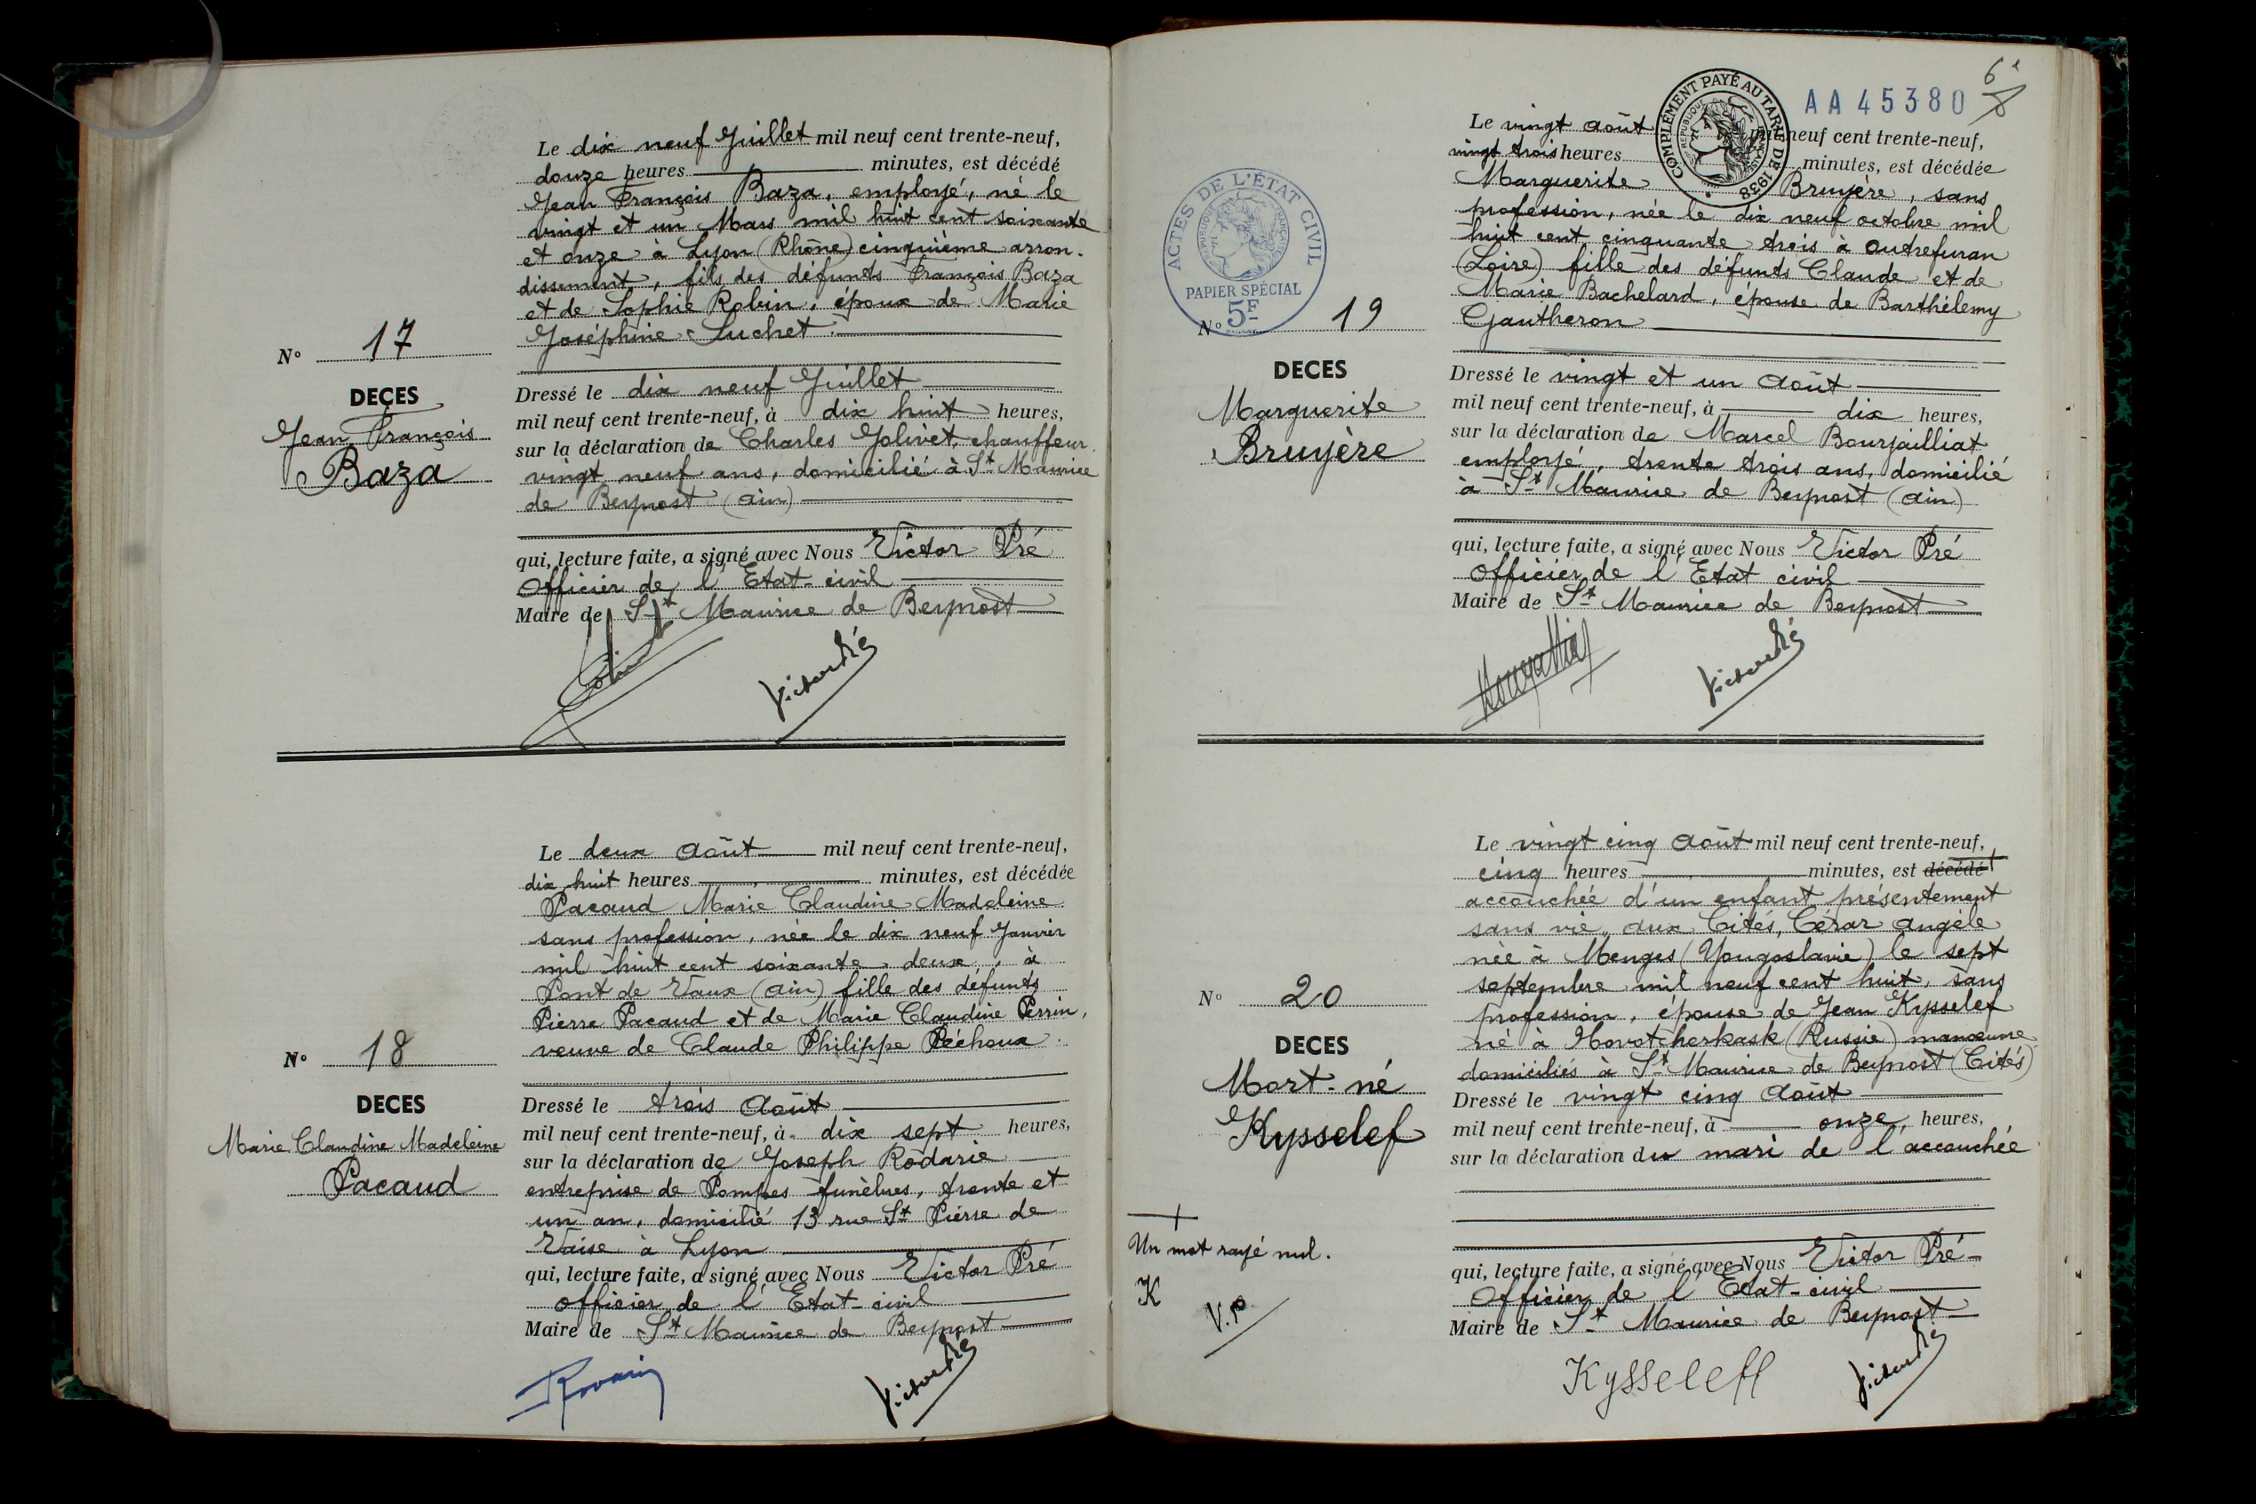 Le dix neuf Juillet mil neuf cent trente-neuf,
douze heures minutes, est décédé
Jean François Baza, employé, né le
vingt et un Mars mil huit cent soixante
et onze à Lyon (Rhône) cinquième arron-
dissement, fils des défunts François Baza
et de Sophie Robin, époux de Marie
Joséphine Luchet.
N° 17
DECES
Jean François
Baza
Dressé le dix neuf Juillet
mil neuf cent trente-neuf, à dix huit heures,
sur la déclaration de Charles Jolivet, chauffeur
vingt neuf ans, domicilié à St Maurice
de Beynost (Ain)
qui, lecture faite, a signé avec Nous Victor Pré
Officier de l'Etat-civil
Maire de St Maurice de Beynost
Victor Pré
Le deux Août mil neuf cent trente-neuf,
dix huit heures minutes, est décédée
Pacaud Marie Claudine Madeleine
sans profession, née le dix neuf Janvier
mil huit cent soixante deux, à
Pont de Vaux (Ain) fille des défunts
Pierre Pacaud et de Marie Claudine Perrin,
veuve de Claude Philippe Péchoux.
N° 18
DECES
Marie Claudine Madeleine
Pacaud
Dressé le trois Août
mil neuf cent trente-neuf, à dix sept heures,
sur la déclaration de Joseph Rodarie
entreprise de Pompes funèbres, trente et
un an, domicilié 13 rue St Pierre de
Vaise à Lyon
qui, lecture faite, a signé avec Nous Victor Pré
Officier de l'Etat-civil
Maire de St Maurice de Beynost
Victor Pré
AA 45380
COMPLÉMENT PAYÉ AU TARIF DE 1938
RÉPUBLIQUE FRANÇAISE
Le vingt Août mil neuf cent trente-neuf,
vingt trois heures minutes, est décédée
Marguerite Bruyère, sans
profession, née le dix neuf octobre mil
huit cent cinquante trois à Outrefuran
(Loire) fille des défunts Claude et de
Marie Bachelard, épouse de Barthélemy
Gautheron
ACTES DE L'ÉTAT CIVIL
RÉPUBLIQUE FRANÇAISE
PAPIER SPÉCIAL
5F
N° 19
DECES
Marguerite
Bruyère
Dressé le vingt et un Août
mil neuf cent trente-neuf, à dix heures,
sur la déclaration de Marcel Bourjailliat
employé, trente trois ans, domicilié
à St Maurice de Beynost (Ain)
qui, lecture faite, a signé avec Nous Victor Pré
Officier de l'Etat civil
Maire de St Maurice de Beynost
Victor Pré
Le vingt cinq Août mil neuf cent trente-neuf,
cinq heures minutes, est décédé
accouchée d'un enfant présentement
sans vie, aux Cités, Cérar Angèle
née à Menges (Yougoslavie) le sept
septembre mil neuf cent huit, sans
profession, épouse de Jean Kysselef
né à Novotcherkask (Russie) manœuvre
domiciliés à St Maurice de Beynost (Cités)
N° 20
DECES
Mort-né
Kysselef
Dressé le vingt cinq Août
mil neuf cent trente-neuf, à onze, heures,
sur la déclaration du mari de l'accouchée
Un mot rayé nul.
K
V.P
qui, lecture faite, a signé avec Nous Victor Pré
Officier de l'Etat-civil
Maire de St Maurice de Beynost
Kysseleff
Victor Pré